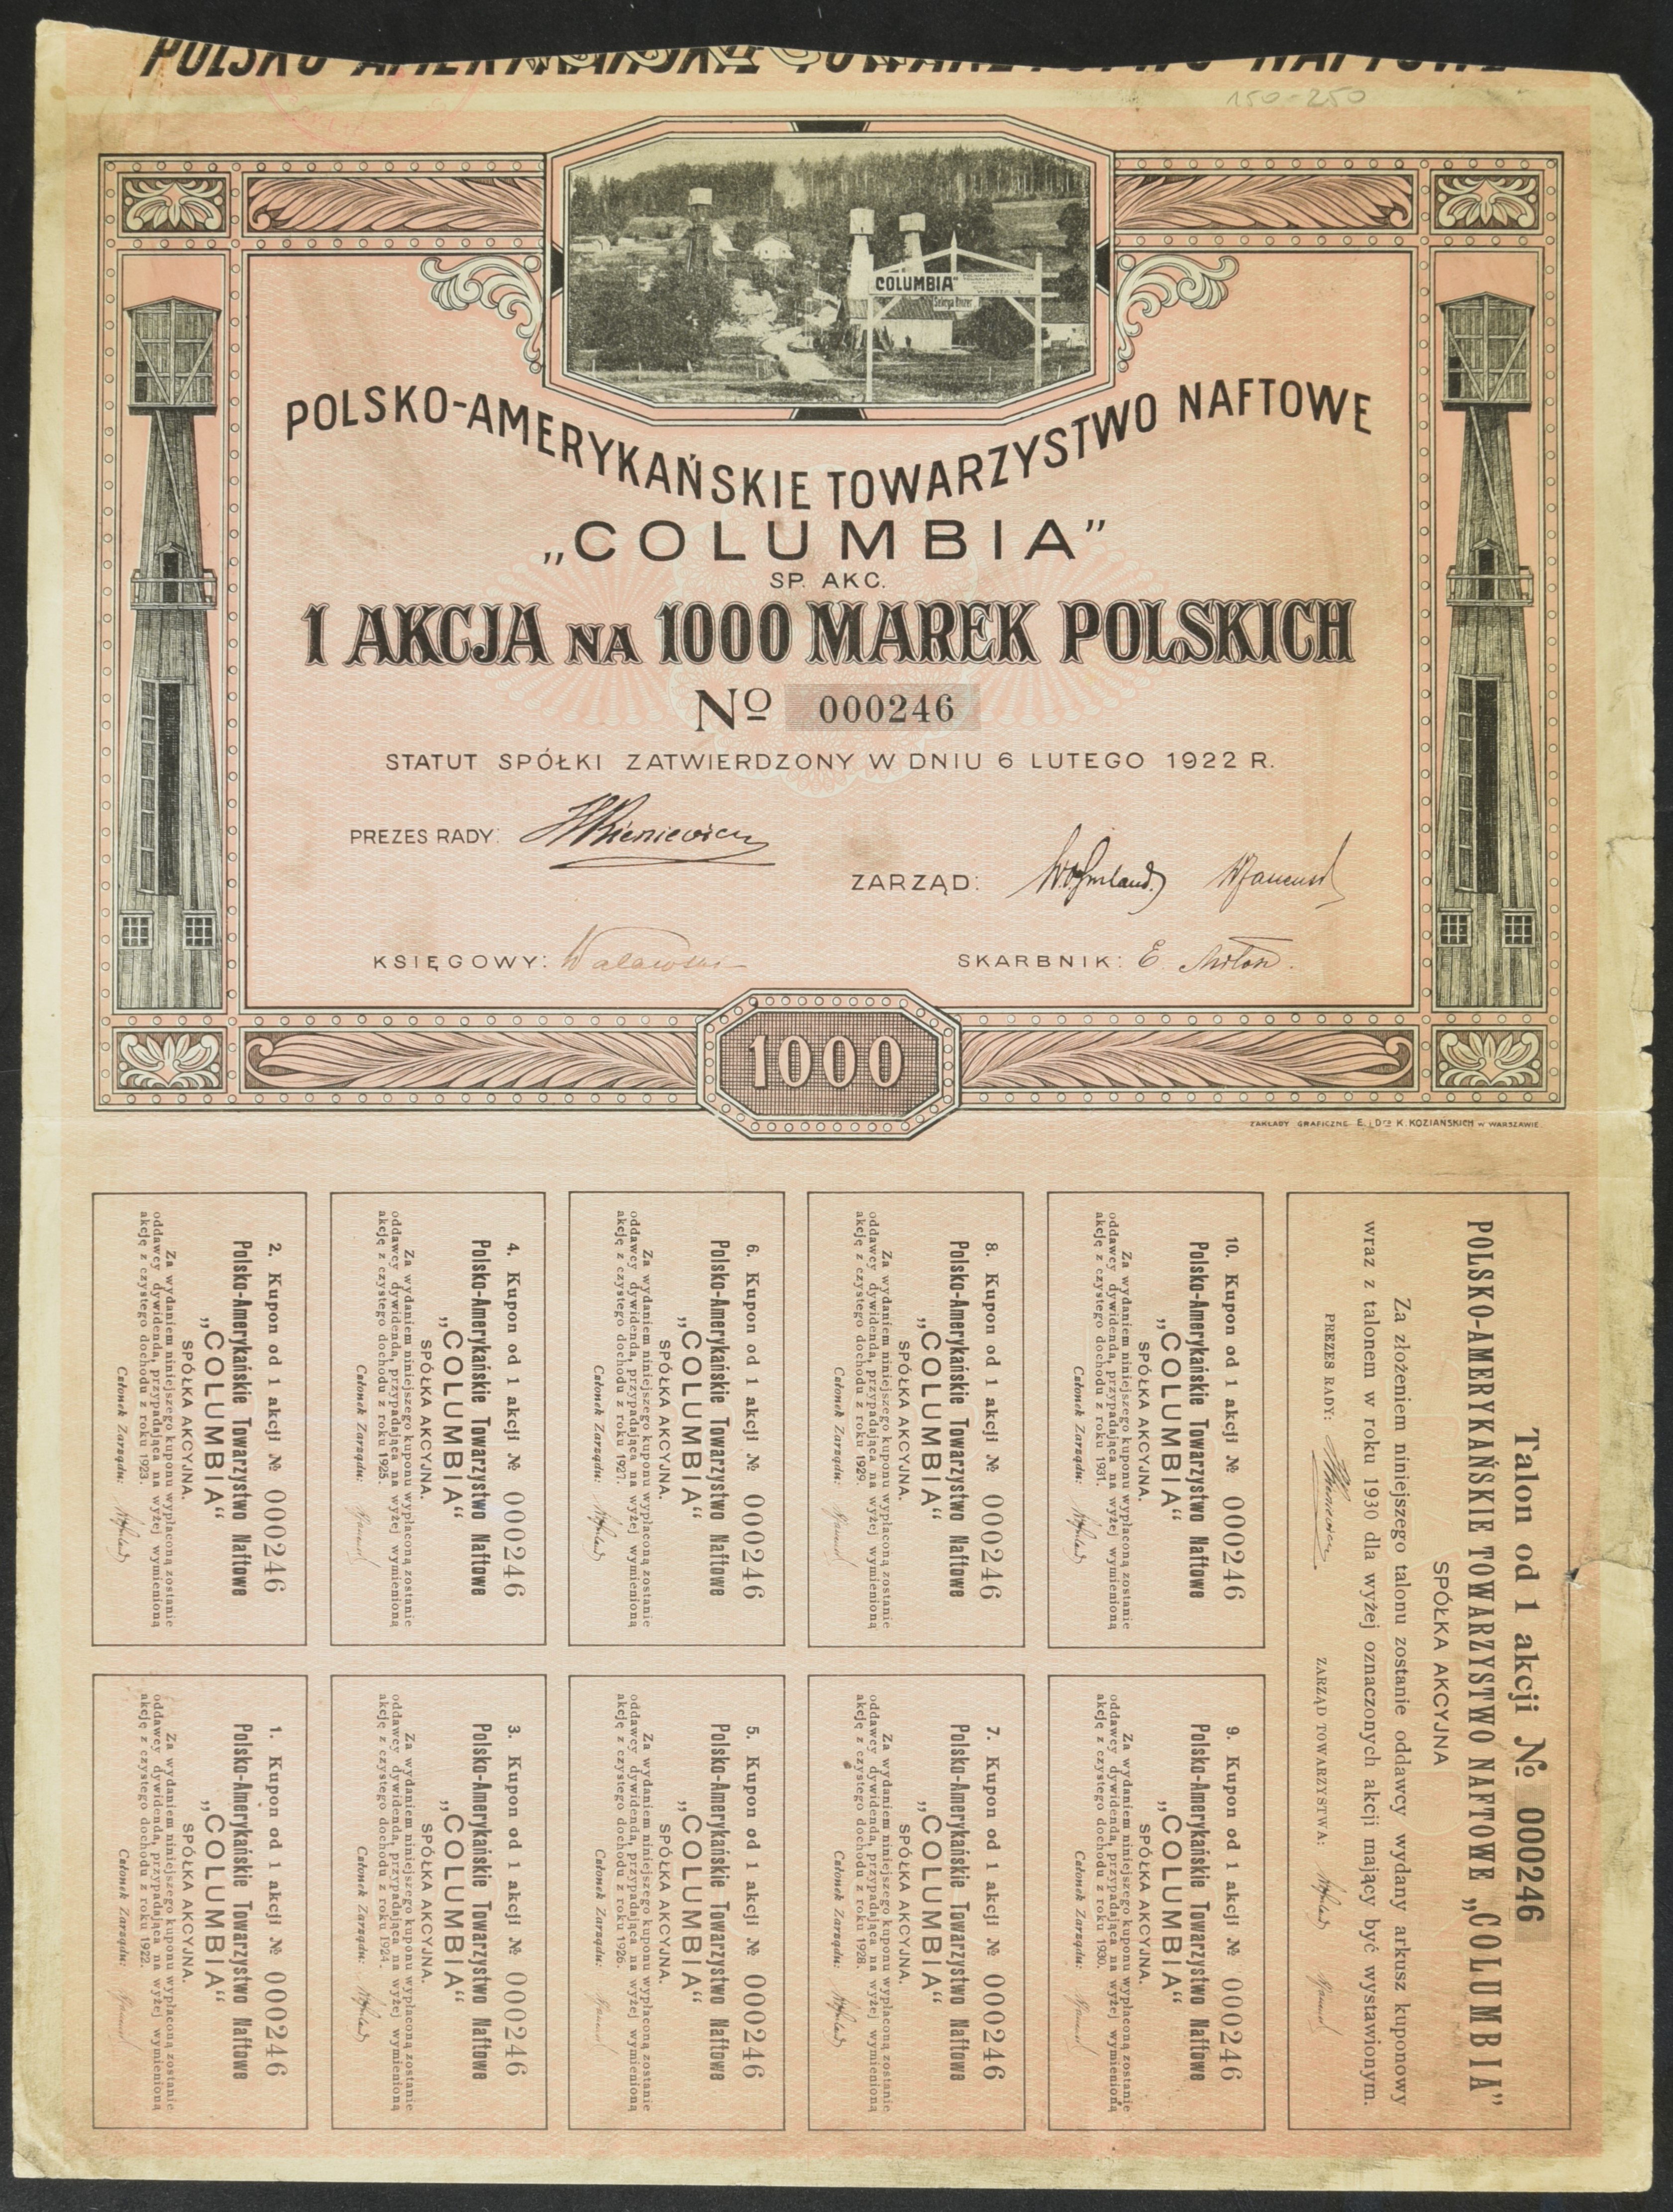 POLSKO-AMERYKAŃSKIE TOWARZYSTWO NAFTOWE
150-250
„COLUMBIA”
POLSKO-AMERYKAŃSKIE TOWARZYSTWO NAFTOWE
„COLUMBIA”
SP. AKC.
1 AKCJA NA 1000 MAREK POLSKICH
Nº 000246
STATUT SPÓŁKI ZATWIERDZONY W DNIU 6 LUTEGO 1922 R.
PREZES RADY:
ZARZĄD:
KSIĘGOWY:
SKARBNIK:
1000
ZAKŁADY GRAFICZNE E. i Dra K. KOZIAŃSKICH w WARSZAWIE.
Talon od 1 akcji № 000246
POLSKO-AMERYKAŃSKIE TOWARZYSTWO NAFTOWE „COLUMBIA”
SPÓŁKA AKCYJNA
Za złożeniem niniejszego talonu zostanie oddawcy wydany arkusz kuponowy
wraz z talonem w roku 1930 dla wyżej oznaczonych akcji mający być wystawionym.
PREZES RADY:
ZARZĄD TOWARZYSTWA:
10. Kupon od 1 akcji № 000246
Polsko-Amerykańskie Towarzystwo Naftowe
„COLUMBIA“
SPÓŁKA AKCYJNA.
Za wydaniem niniejszego kuponu wypłaconą zostanie
oddawcy dywidenda, przypadająca na wyżej wymienioną
akcję z czystego dochodu z roku 1931.
Członek Zarządu:
9. Kupon od 1 akcji № 000246
Polsko-Amerykańskie Towarzystwo Naftowe
„COLUMBIA“
SPÓŁKA AKCYJNA.
Za wydaniem niniejszego kuponu wypłaconą zostanie
oddawcy dywidenda, przypadająca na wyżej wymienioną
akcję z czystego dochodu z roku 1930.
Członek Zarządu:
8. Kupon od 1 akcji № 000246
Polsko-Amerykańskie Towarzystwo Naftowe
„COLUMBIA“
SPÓŁKA AKCYJNA.
Za wydaniem niniejszego kuponu wypłaconą zostanie
oddawcy dywidenda, przypadająca na wyżej wymienioną
akcję z czystego dochodu z roku 1929
Członek Zarządu:
7. Kupon od 1 akcji № 000246
Polsko-Amerykańskie Towarzystwo Naftowe
„COLUMBIA“
SPÓŁKA AKCYJNA.
Za wydaniem niniejszego kuponu wypłaconą zostanie
oddawcy dywidenda, przypadająca na wyżej wymienioną
akcję z czystego dochodu z roku 1928.
Członek Zarządu:
6. Kupon od 1 akcji № 000246
Polsko-Amerykańskie Towarzystwo Naftowe
„COLUMBIA“
SPÓŁKA AKCYJNA.
Za wydaniem niniejszego kuponu wypłaconą zostanie
oddawcy dywidenda, przypadająca na wyżej wymienioną
akcję z czystego dochodu z roku 1927.
Członek Zarządu:
5. Kupon od 1 akcji № 000246
Polsko-Amerykańskie Towarzystwo Naftowe
„COLUMBIA“
SPÓŁKA AKCYJNA.
Za wydaniem niniejszego kuponu wypłaconą zostanie
oddawcy dywidenda, przypadająca na wyżej wymienioną
akcję z czystego dochodu z roku 1926.
Członek Zarządu:
4. Kupon od 1 akcji № 000246
Polsko-Amerykańskie Towarzystwo Naftowe
„COLUMBIA“
SPÓŁKA AKCYJNA.
Za wydaniem niniejszego kuponu wypłaconą zostanie
oddawcy dywidenda, przypadająca na wyżej wymienioną
akcję z czystego dochodu z roku 1925.
Członek Zarządu:
3. Kupon od 1 akcji № 000246
Polsko-Amerykańskie Towarzystwo Naftowe
„COLUMBIA“
SPÓŁKA AKCYJNA.
Za wydaniem niniejszego kuponu wypłaconą zostanie
oddawcy dywidenda, przypadająca na wyżej wymienioną
akcję z czystego dochodu z roku 1924.
Członek Zarządu:
2. Kupon od 1 akcji № 000246
Polsko-Amerykańskie Towarzystwo Naftowe
„COLUMBIA“
SPÓŁKA AKCYJNA.
Za wydaniem niniejszego kuponu wypłaconą zostanie
oddawcy dywidenda, przypadająca na wyżej wymienioną
akcję z czystego dochodu z roku 1923.
Członek Zarządu:
1. Kupon od 1 akcji № 000246
Polsko-Amerykańskie Towarzystwo Naftowe
„COLUMBIA“
SPÓŁKA AKCYJNA.
Za wydaniem niniejszego kuponu wypłaconą zostanie
oddawcy dywidenda, przypadająca na wyżej wymienioną
akcję z czystego dochodu z roku 1922.
Członek Zarządu: